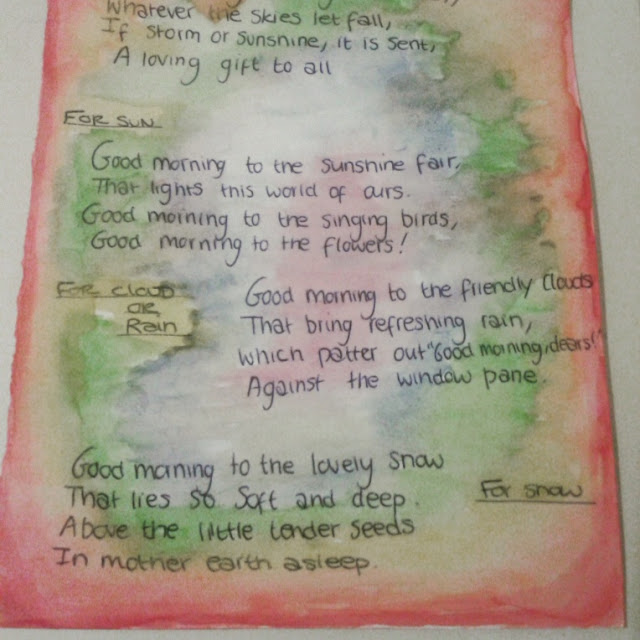 Whatever the skies let fall,
If storm or sunshine, it is sent,
A loving gift to all
FOR SUN
Good morning to the sunshine fair,
That lights this world of ours.
Good morning to the singing birds,
Good morning to the flowers!
FOR CLOUD
OR
RAIN
Good morning to the friendly clouds
That bring refreshing rain,
which patter out "Good morning, dears!"
Against the window pane.
Good morning to the lovely snow
That lies so soft and deep.
Above the little tender seeds
In mother earth asleep.
For snow